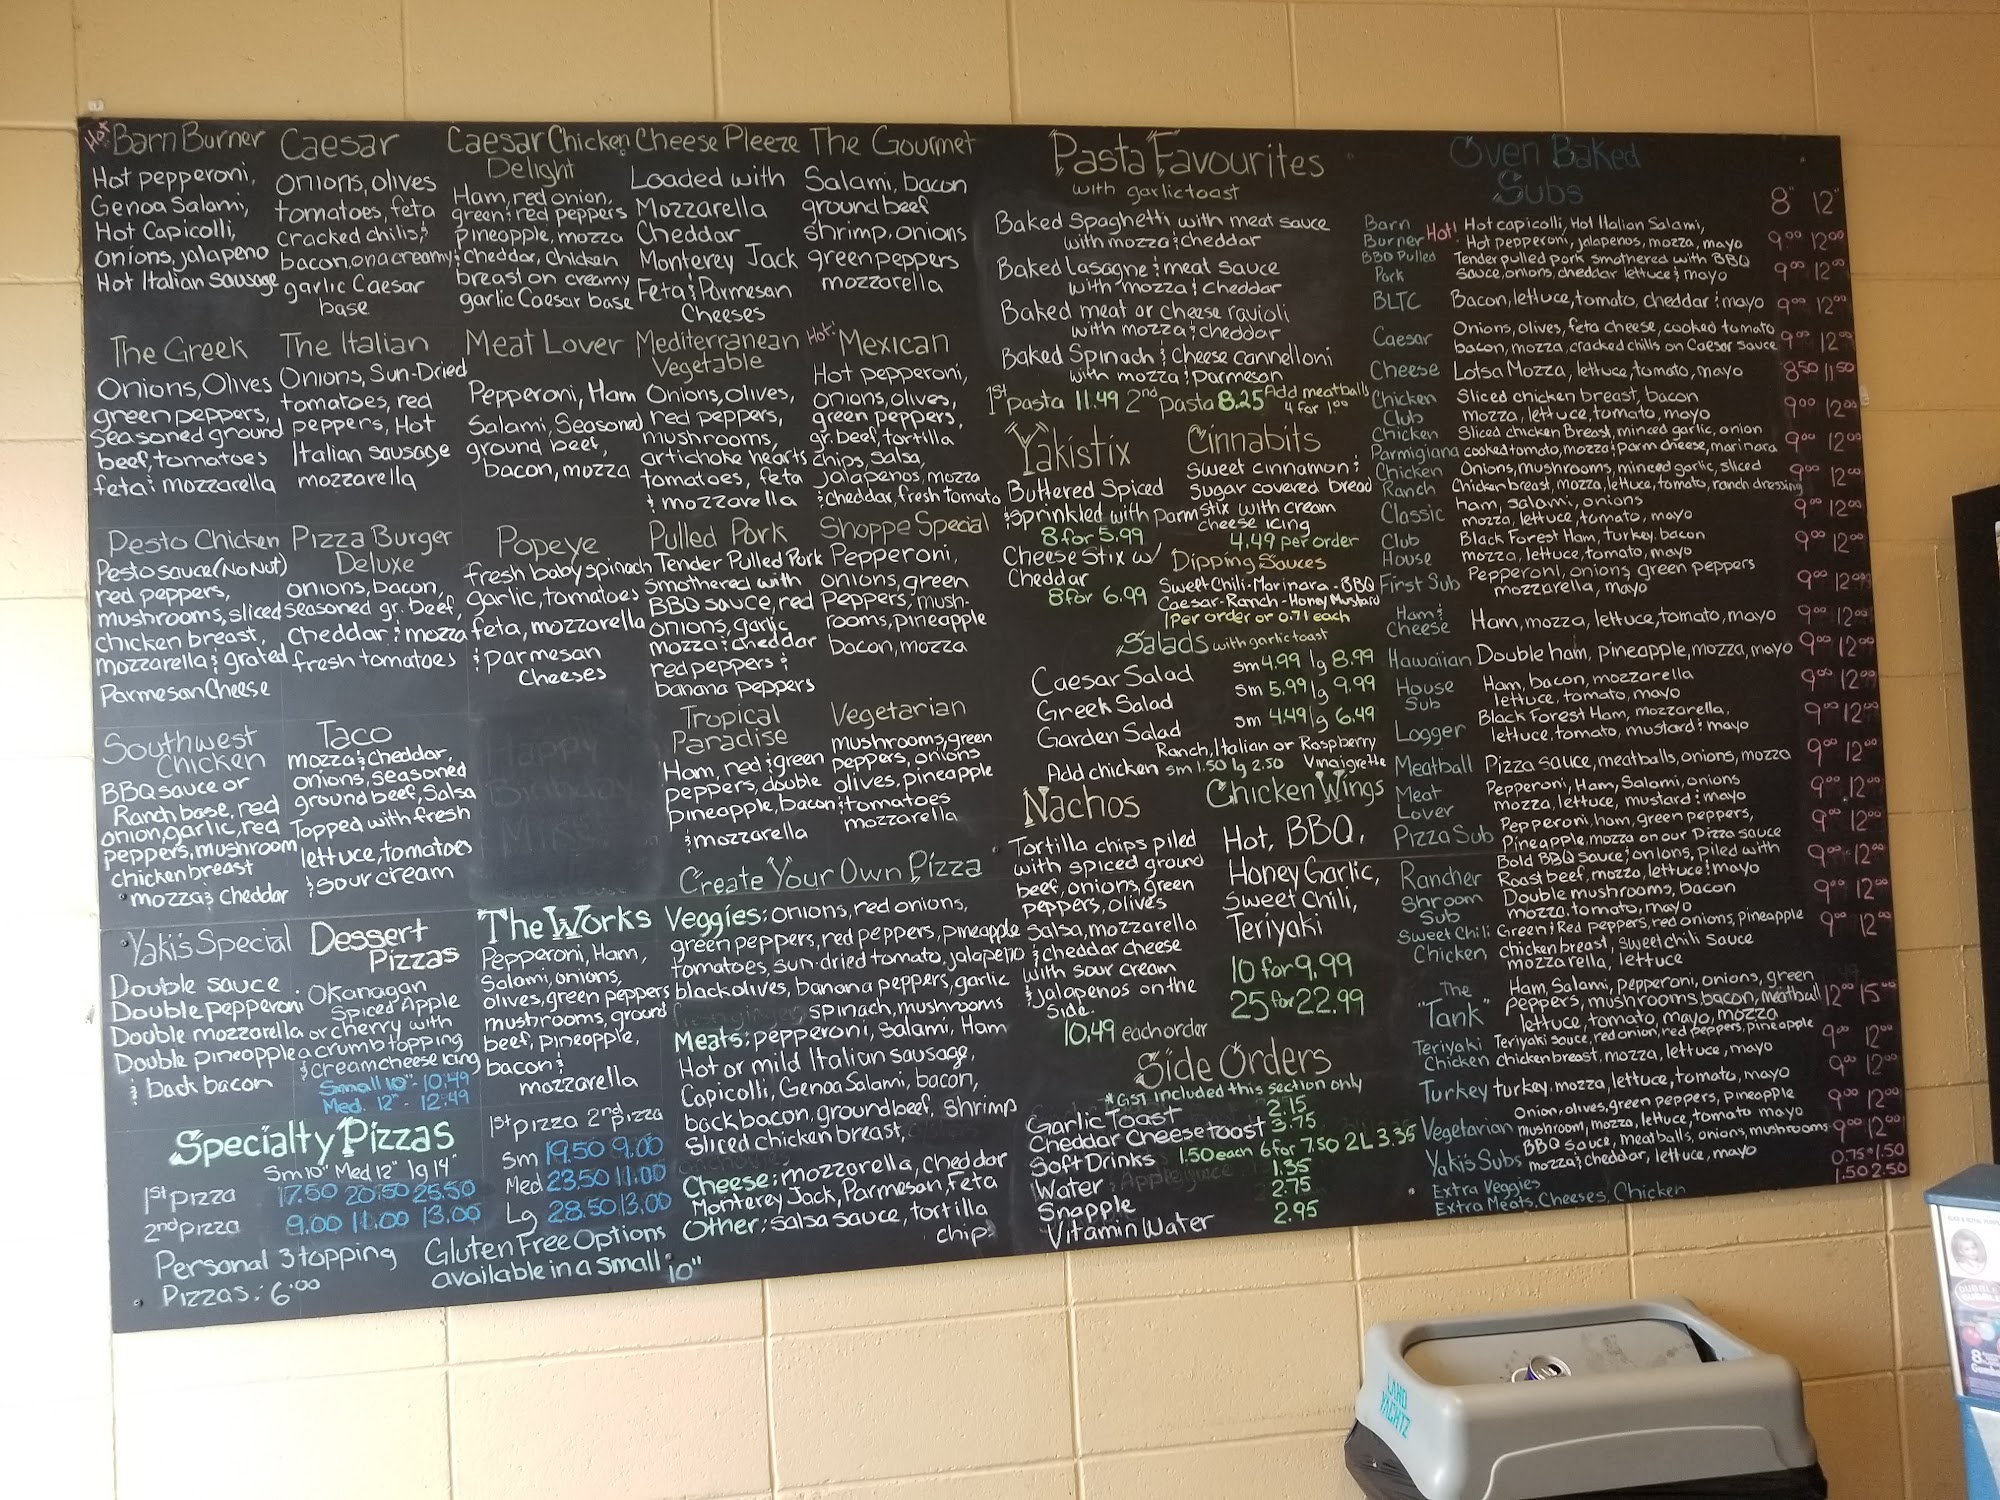 Hot Barn Burner
Hot pepperoni,
Genoa Salami,
Hot Capicolli,
onions, jalapeno
Hot Italian Sausage
Caesar
onions, olives
tomatoes, feta
cracked chilis, &
bacon, on a creamy
garlic Caesar
base
Caesar Chicken
Delight
Ham, red onion,
green & red peppers
pineopple, mozza
& cheddar, chicken
breast on creamy
garlic Caesar base
Cheese Pleeze
Loaded with
Mozzarella
Cheddar
Monterey Jack
Feta & Parmesan
Cheeses
The Gourmet
Salami, bacon
ground beef
shrimp, onions
green peppers
mozzarella
The Greek
Onions, Olives
green peppers,
Seasoned ground
beef, tomatoes
feta & mozzarella
The Italian
Onions, Sun-Dried
tomatoes, red
peppers, Hot
Italian sausage
mozzarella
Meat Lover
Pepperoni, Ham
Salami, Seasoned
ground beef,
bacon, mozza
Mediterranean
Vegetable
Onions, olives,
red peppers,
mushrooms,
artichoke hearts
tomatoes, feta
& mozzarella
Hot! Mexican
Hot pepperoni,
onions, olives,
green peppers,
gr. beef, tortilla
chips, salsa,
Jalapenos, mozza
& cheddar, fresh tomato
Pesto Chicken
Pesto sauce (No Nut)
red peppers,
mushrooms, sliced
chicken breast,
mozzarella & grated
Parmesan Cheese
Pizza Burger
Deluxe
onions, bacon,
seasoned gr. beef,
cheddar & mozza
fresh tomatoes
Popeye
fresh baby spinach
garlic, tomatoes
feta, mozzarella
& parmesan
cheeses
Pulled Pork
Tender Pulled Pork
Smothered with
BBQ sauce, red
onions, garlic
mozza & cheddar
red peppers &
banana peppers
Shoppe Special
Pepperoni,
onions, green
Peppers, mush-
rooms, pineapple
bacon, mozza
Southwest
Chicken
BBQ sauce or
Ranch base, red
onion, garlic, red
peppers, mushroom
chicken breast
mozza & cheddar
Taco
mozza & cheddar,
onions, seasoned
ground beef, salsa
Topped with fresh
lettuce, tomatoes
& sour cream
Happy
Birthday
Mike
Tropical
Paradise
Ham, red & green
peppers, double
pineapple, bacon
& mozzarella
Vegetarian
mushrooms, green
peppers, onions
olives, pineapple
& tomatoes
mozzarella
Yaki's Special
Double sauce
Double pepperoni
Double mozzarella
Double pineapple
& back bacon
Dessert
Pizzas
Okanagan
Spiced Apple
or cherry with
a crumb topping
& cream cheese icing
Small 10" - 10.49
Med. 12" - 12.49
The Works
Pepperoni, Ham,
Salami, onions,
olives, green peppers
mushrooms, ground
beef, pineapple,
bacon &
mozzarella
1st pizza 2nd pizza
Sm 19.50 9.00
Med 23.50 11.00
Lg 28.50 13.00
Specialty Pizzas
Sm 10" Med 12" lg 14"
1st pizza 17.50 20.50 25.50
2nd pizza 9.00 11.00 13.00
Personal 3 topping
Pizzas: 6.00
Gluten Free Options
available in a small 10"
Create Your Own Pizza
Veggies: onions, red onions,
green peppers, red peppers, pineapple
tomatoes, sun-dried tomato, jalapeno
black olives, banana peppers, garlic
spinach, mushrooms
Meats: pepperoni, Salami, Ham
Hot or mild Italian sausage,
Capicolli, Genoa Salami, bacon,
back bacon, ground beef, shrimp
Sliced chicken breast,
Cheese: mozzarella, cheddar
Monterey Jack, Parmesan, Feta
Other: salsa sauce, tortilla
chips
Pasta Favourites
with garlic toast
Baked Spaghetti with meat sauce
with mozza & cheddar
Baked Lasagne & meat sauce
with mozza & cheddar
Baked meat or cheese ravioli
with mozza & cheddar
Baked Spinach & Cheese cannelloni
with mozza & parmesan
1st pasta 11.49 2nd pasta 8.25 Add meatballs
4 for 1.00
Yakistix
Buttered Spiced
& sprinkled with parm
8 for 5.99
Cheese Stix w/
Cheddar
8 for 6.99
Cinnabits
Sweet cinnamon &
Sugar covered bread
stix with cream
cheese icing
4.49 per order
Dipping Sauces
Sweet Chili - Marinara - BBQ
Caesar - Ranch - Honey Mustard
1 per order or 0.71 each
Salads with garlic toast
Caesar Salad sm 4.99 lg 8.99
Greek Salad sm 5.99 lg 9.99
Garden Salad sm 4.49 lg 6.49
Ranch, Italian or Raspberry
Vinaigrette
Add chicken sm 1.50 lg 2.50
Nachos
Tortilla chips piled
with spiced ground
beef, onions, green
peppers, olives
salsa, mozzarella
& cheddar cheese
with sour cream
& jalapenos on the
side.
10.49 each order
Chicken Wings
Hot, BBQ,
Honey Garlic,
Sweet Chili,
Teriyaki
10 for 9.99
25 for 22.99
Side Orders
*GST included this section only
Garlic Toast 2.15
Cheddar Cheese toast 3.75
Soft Drinks 1.50 each 6 for 7.50 2L 3.35
Water 1.35
Snapple 2.75
Vitamin Water 2.95
Oven Baked
Subs
8" 12"
Barn Burner Hot! Hot capicolli, Hot Italian Salami,
Hot pepperoni, jalapenos, mozza, mayo 9.00 12.00
BBQ Pulled Pork Tender pulled pork smothered with BBQ
sauce, onions, cheddar lettuce & mayo 9.00 12.00
BLTC Bacon, lettuce, tomato, cheddar & mayo 9.00 12.00
Caesar Onions, olives, feta cheese, cooked tomato
bacon, mozza, cracked chilis on Caesar sauce 9.00 12.00
Cheese Lotsa Mozza, lettuce, tomato, mayo 8.50 11.50
Chicken Club Sliced chicken breast, bacon
mozza, lettuce, tomato, mayo 9.00 12.00
Chicken Parmigiana Sliced chicken Breast, minced garlic, onion
cooked tomato, mozza & parm cheese, marinara 9.00 12.00
Chicken Ranch Onions, mushrooms, minced garlic, sliced
Chicken breast, mozza, lettuce, tomato, ranch dressing 9.00 12.00
Classic ham, salami, onions
mozza, lettuce, tomato, mayo 9.00 12.00
Club House Black Forest Ham, turkey, bacon
mozza, lettuce, tomato, mayo 9.00 12.00
First Sub Pepperoni, onions, green peppers
mozzarella, mayo 9.00 12.00
Ham & Cheese Ham, mozza, lettuce, tomato, mayo 9.00 12.00
Hawaiian Double ham, pineapple, mozza, mayo 9.00 12.00
House Sub Ham, bacon, mozzarella
lettuce, tomato, mayo 9.00 12.00
Logger Black Forest Ham, mozzarella,
lettuce, tomato, mustard & mayo 9.00 12.00
Meatball Pizza sauce, meatballs, onions, mozza 9.00 12.00
Meat Lover Pepperoni, Ham, Salami, onions
mozza, lettuce, mustard & mayo 9.00 12.00
Pizza Sub Pepperoni, ham, green peppers,
Pineapple, mozza on our Pizza sauce 9.00 12.00
Rancher Bold BBQ sauce & onions, piled with
Roast beef, mozza, lettuce & mayo 9.00 12.00
Shroom Sub Double mushrooms, bacon
mozza, tomato, mayo 9.00 12.00
Sweet Chili Chicken Green & Red Peppers, red onions, pineapple
chicken breast, sweet chili sauce
mozzarella, lettuce 9.00 12.00
The "Tank" Ham, Salami, pepperoni, onions, green
peppers, mushrooms, bacon, meatball
lettuce, tomato, mayo, mozza 12.00 15.00
Teriyaki Chicken Teriyaki sauce, red onion, red peppers, pineapple
chicken breast, mozza, lettuce, mayo 9.00 12.00
Turkey turkey, mozza, lettuce, tomato, mayo 9.00 12.00
Vegetarian Onion, olives, green peppers, pineapple
mushroom, mozza, lettuce, tomato mayo 9.00 12.00
Yaki's Subs BBQ sauce, meatballs, onions, mushrooms
mozza & cheddar, lettuce, mayo 9.00 12.00
Extra Veggies 0.75 1.50
Extra Meats, Cheeses, Chicken 1.50 2.50
LAND
YACHTZ